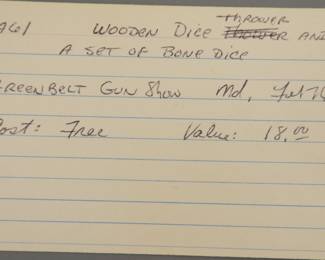 961 WOODEN DICE THROWER AND
A SET OF BONE DICE
GREENBELT GUN Show Md,
Cost: Free Value: 18.00